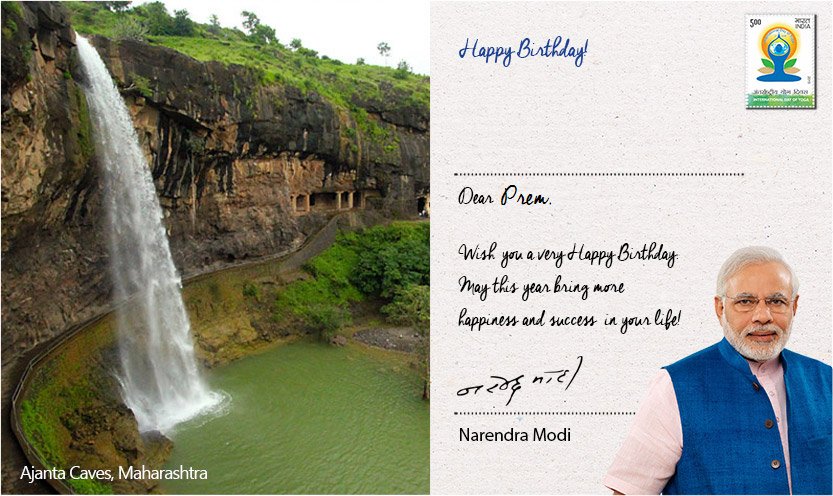 Happy Birthday!
5.00 भारत
INDIA
अंतर्राष्ट्रीय योग दिवस
INTERNATIONAL DAY OF YOGA
Dear Prem,
Wish you a very Happy Birthday.
May this year bring more
happiness and success in your life!
नरेन्द्र मोदी
Narendra Modi
Ajanta Caves, Maharashtra